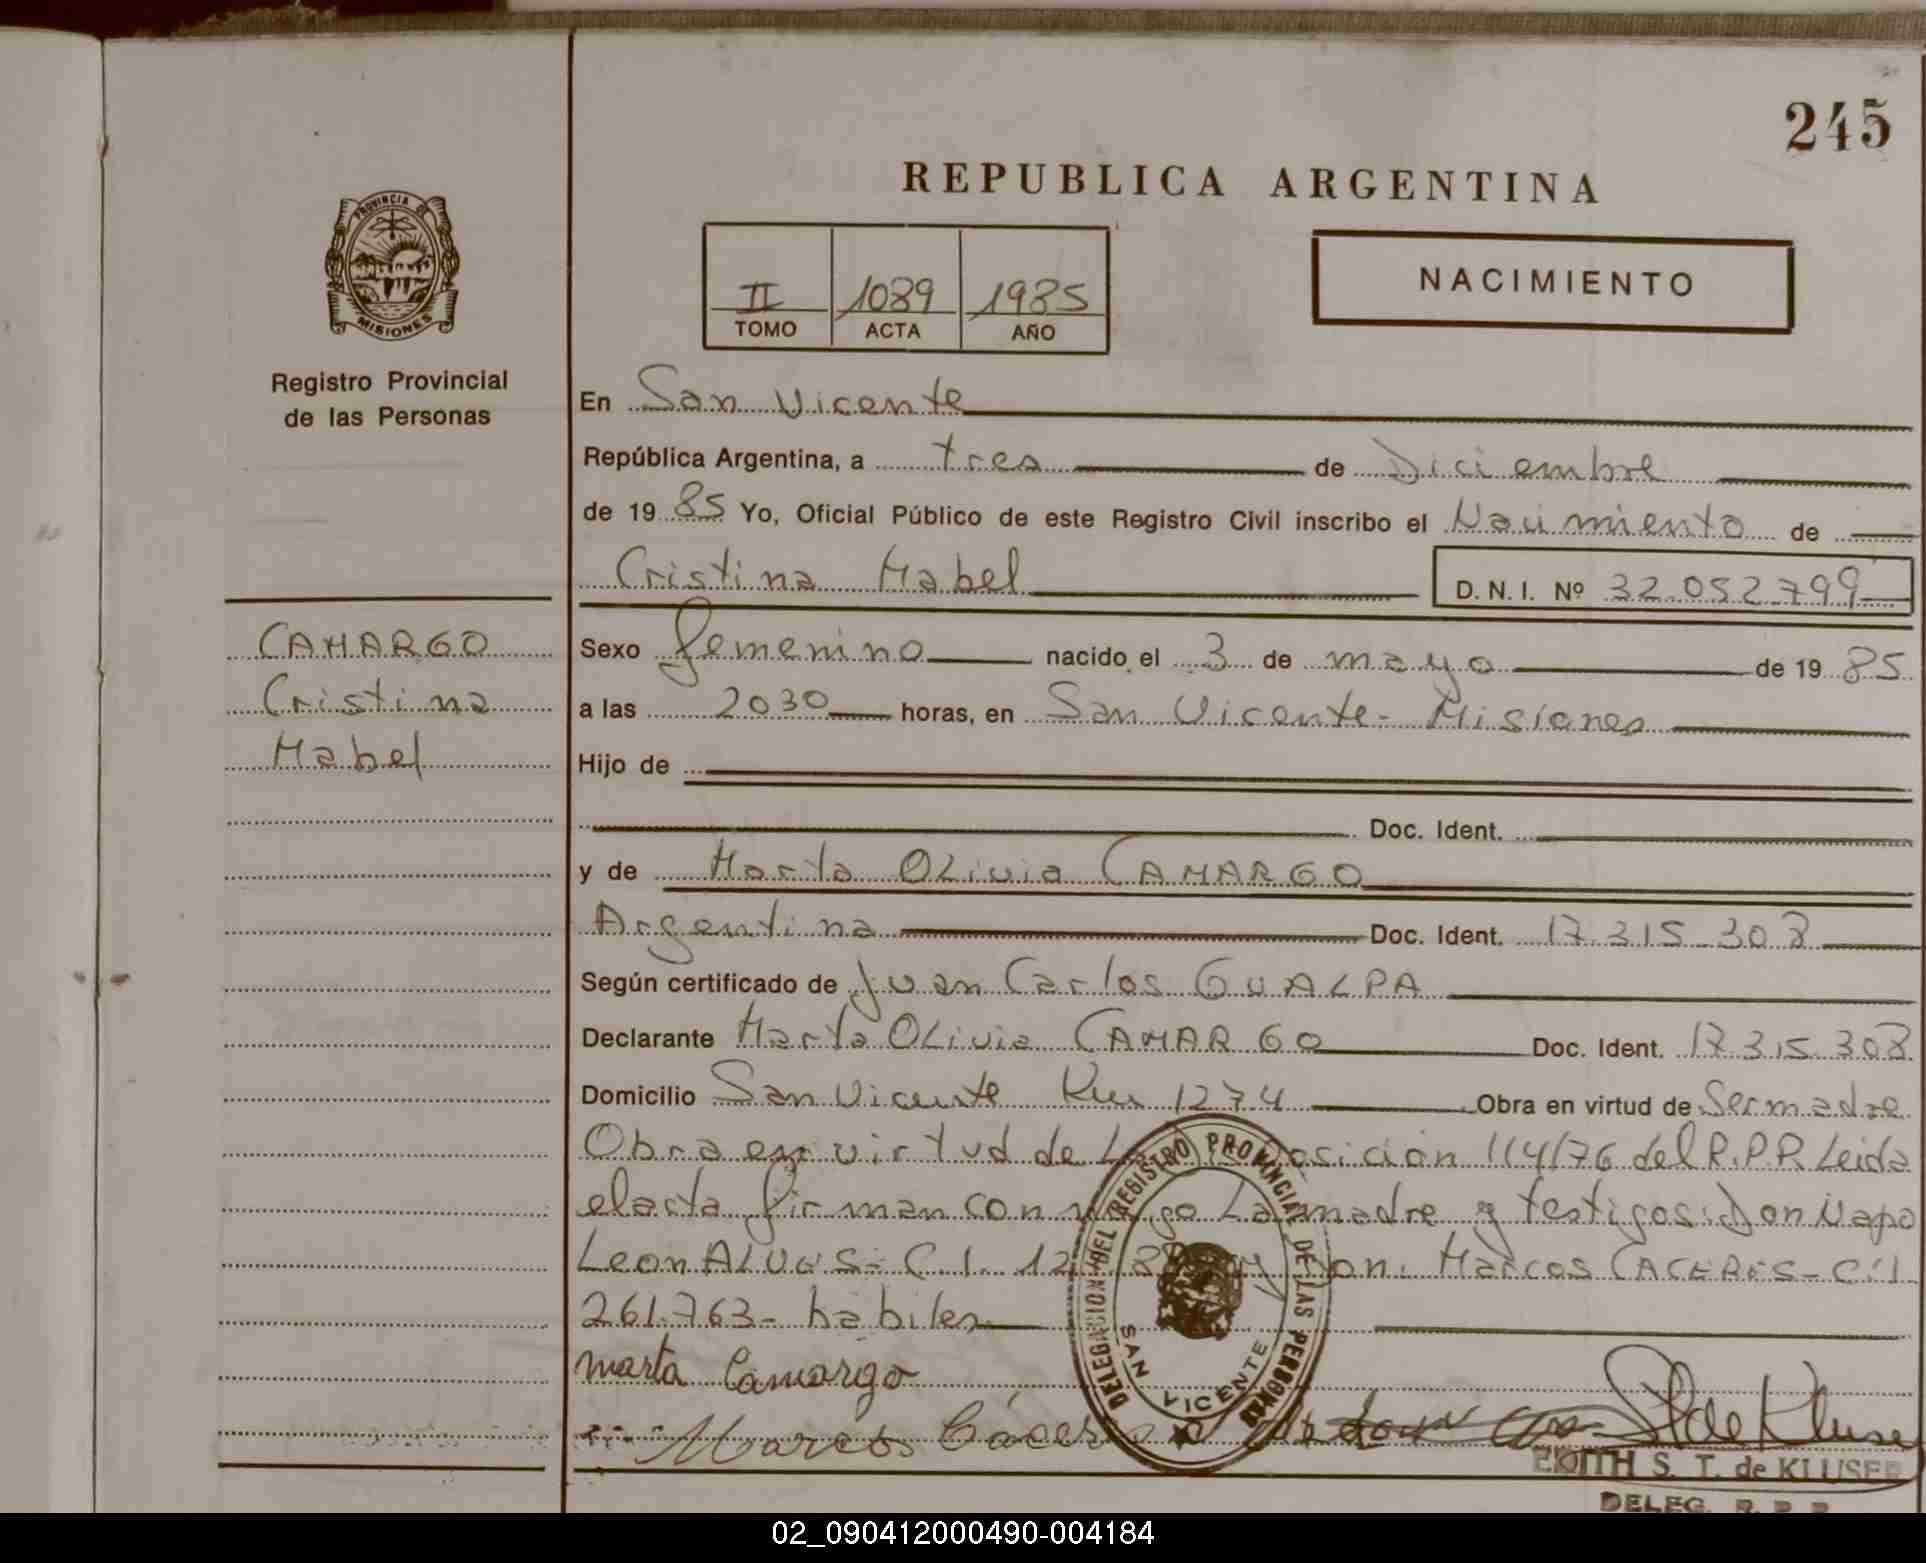 245
REPUBLICA ARGENTINA
PROVINCIA DE
MISIONES
Registro Provincial
de las Personas
II 1089 1985
TOMO ACTA AÑO
NACIMIENTO
En San Vicente
República Argentina, a tres de Diciembre
de 19 85 Yo, Oficial Público de este Registro Civil inscribo el Nacimiento de
Cristina Mabel D. N. I. Nº 32.052.799
CAMARGO
Cristina
Mabel
Sexo femenino nacido el 3 de mayo de 19 85
a las 2030 horas, en San Vicente - Misiones
Hijo de
Doc. Ident.
y de Marta OLivia CAMARGO
Argentina Doc. Ident. 17.315.308
Según certificado de Juan Carlos GUALPA
Declarante Marta OLivia CAMARGO Doc. Ident. 17.315.308
Domicilio San Vicente Km 1274 Obra en virtud de Ser madre
Obra en virtud de La posición 114/76 del R.P.P. Leida
el acta firman conmigo La madre y testigos: Don Napo
Leon ALVES - C.I. 12 y Don. Marcos CACERES - C.I
261.763 - habiles
DELEGACION DEL REGISTRO PROVINCIAL DE LAS PERSONAS
SAN VICENTE
marta Camargo
Marcos Cáceres
S T de Kluser
EDITH S. T. de KLUSER
DELEG. R. P. P.
02_090412000490-004184